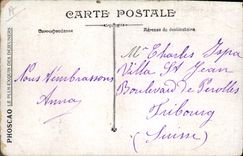 CARTE POSTALE
Correspondance
Adresse du destinataire
PHOSCAO LE PLUS EXQUIS DES DEJEUNERS
Nous t'embrassons
Anna
Mr Charles Ispa
Villa St Jean
Boulevard de Perolles
Fribourg
(Suisse)